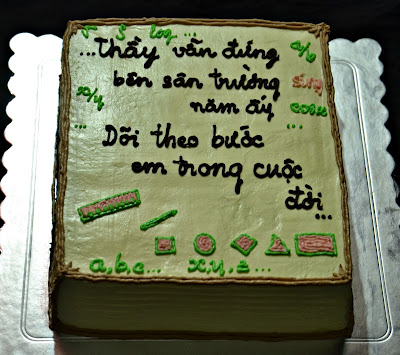 √ ∫ log ...
...Thầy vẫn đứng a/b
bên sân trường sinx
x/y năm ấy cosx
... ...
Dõi theo bước
em trong cuộc
đời...
a,b,c... x,y,z ...